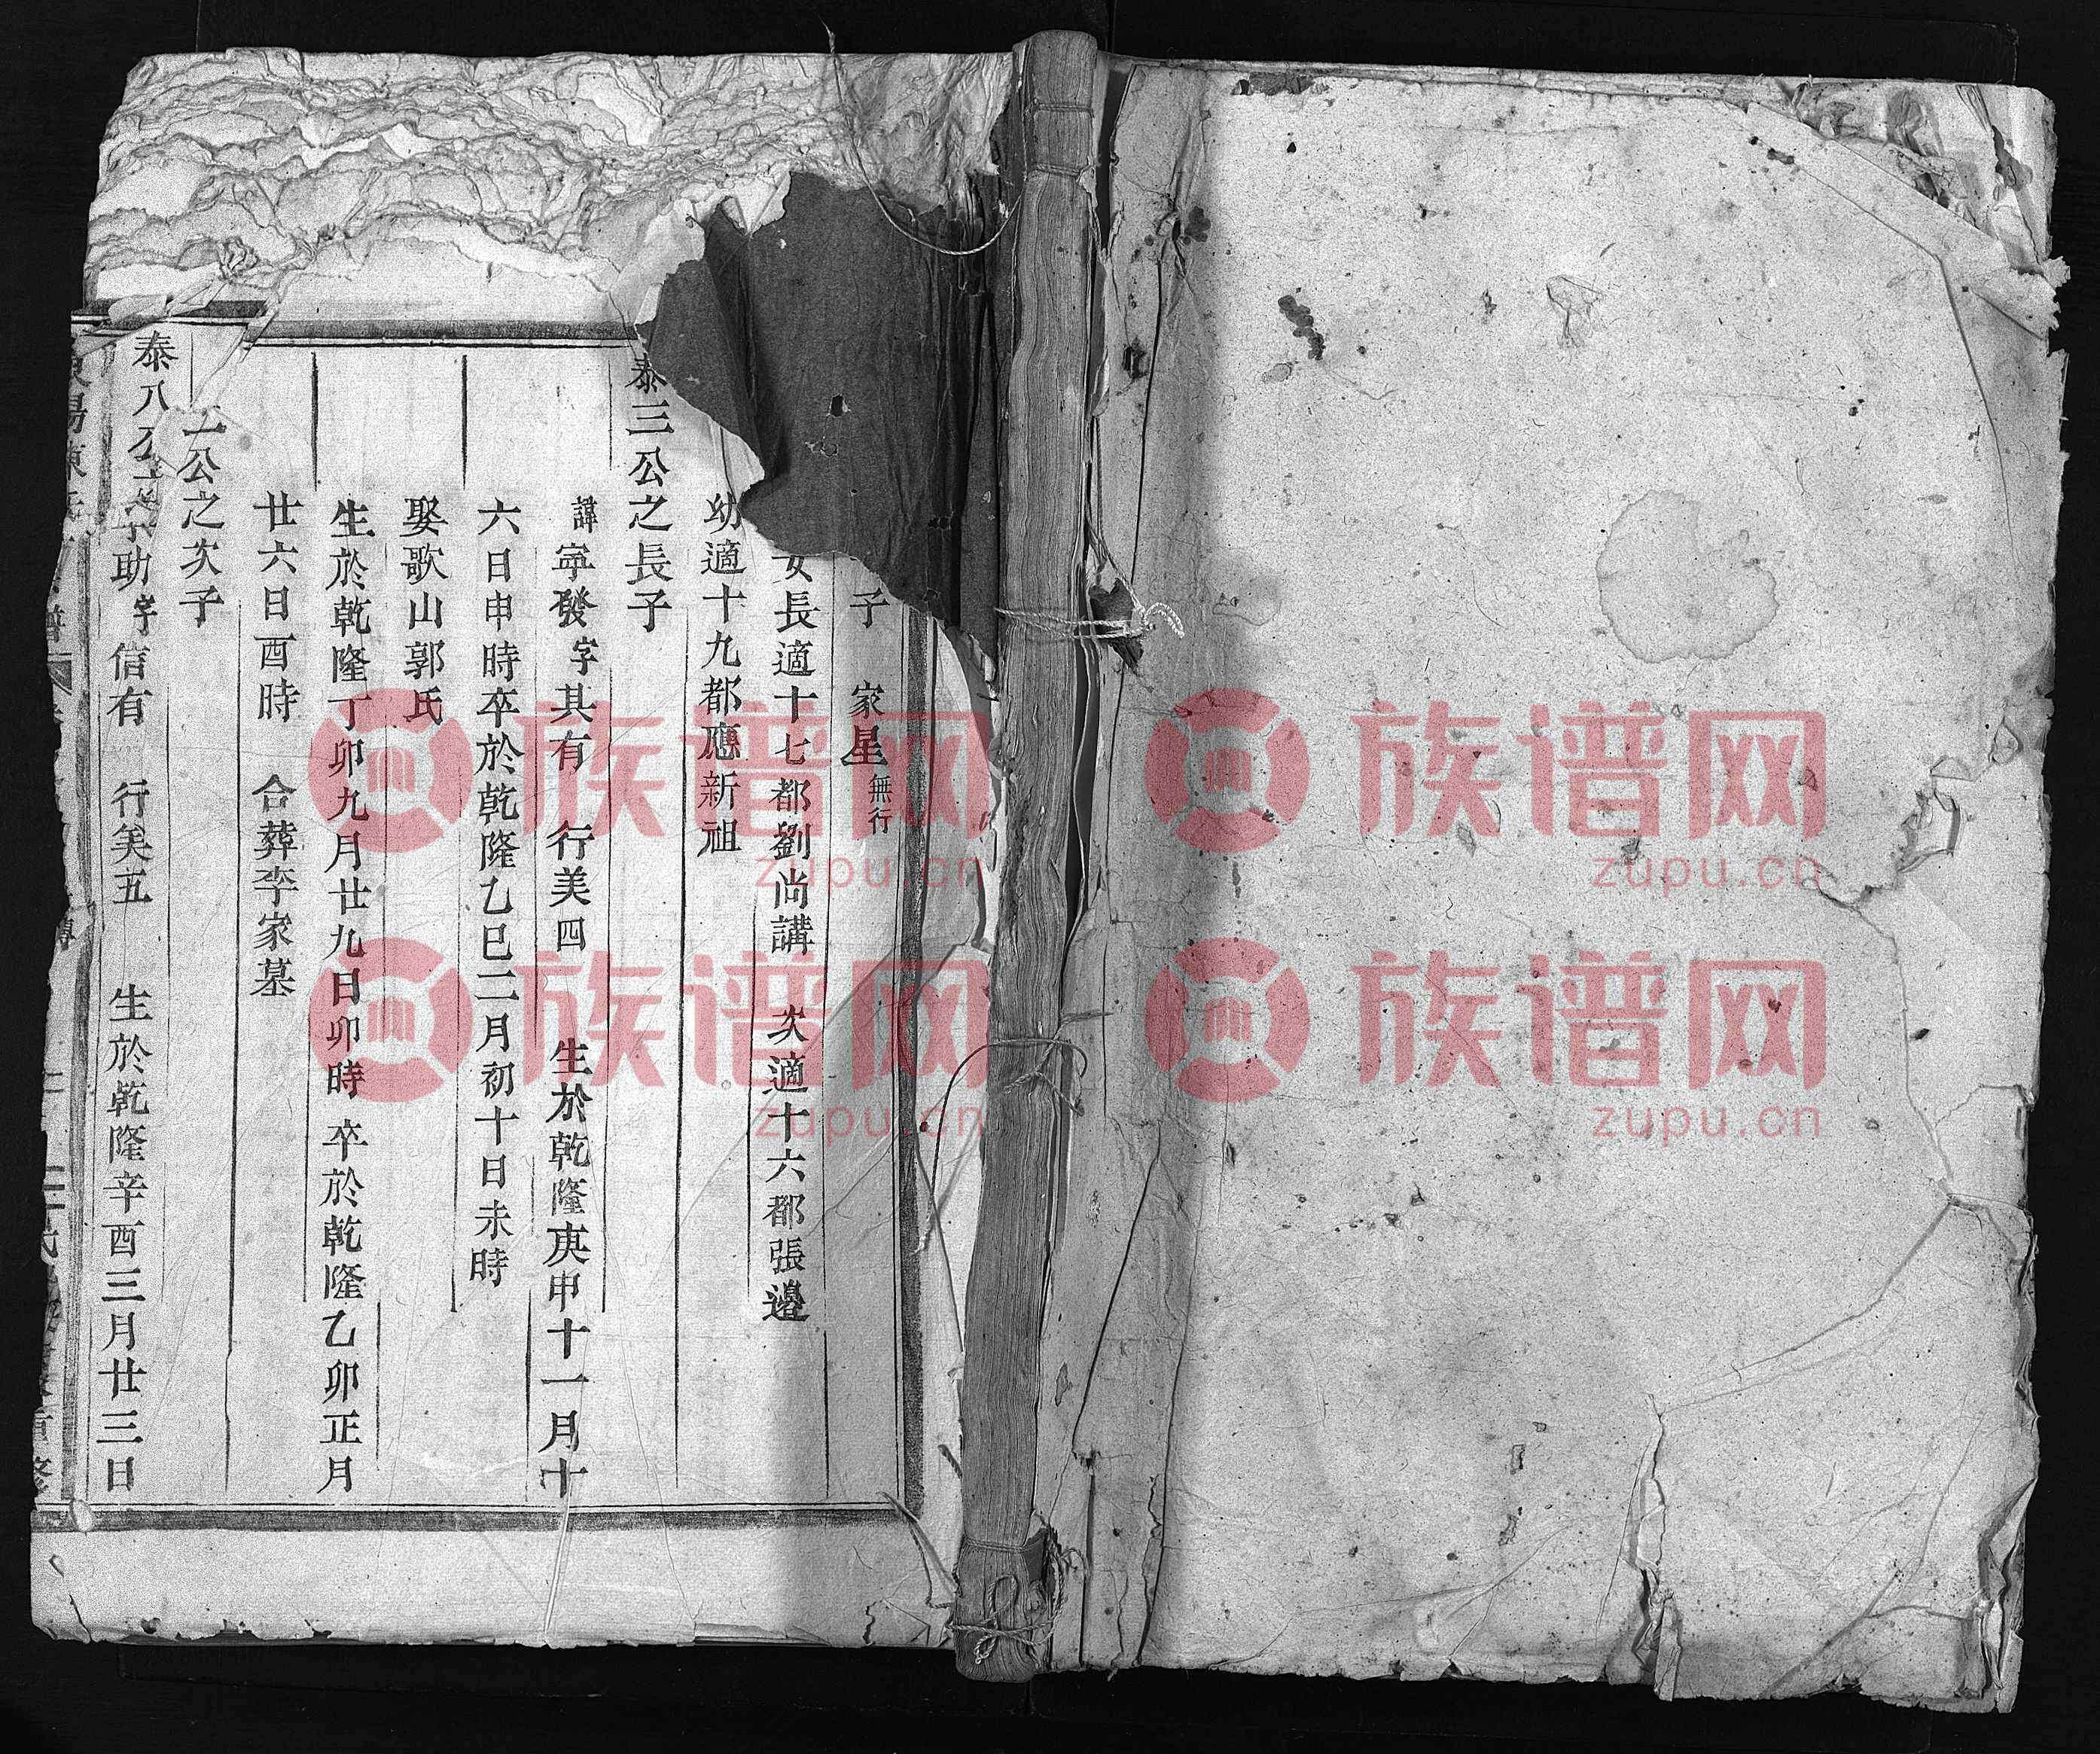 子 家星 無行
女長適十七都劉尚講 次適十六都張邊
幼適十九都應新祖
泰三公之長子
諱寧發字其有 行美四 生於乾隆庚申十一月十
六日申時卒於乾隆乙巳二月初十日未時
娶歌山郭氏
生於乾隆丁卯九月廿九日卯時卒於乾隆乙卯正月
廿六日酉時 合葬李家墓
公之次子
泰八公 助字信有 行美五 生於乾隆辛酉三月廿三日
族谱网
zupu.cn
族谱网
zupu.cn
族谱网
zupu.cn
族谱网
zupu.cn